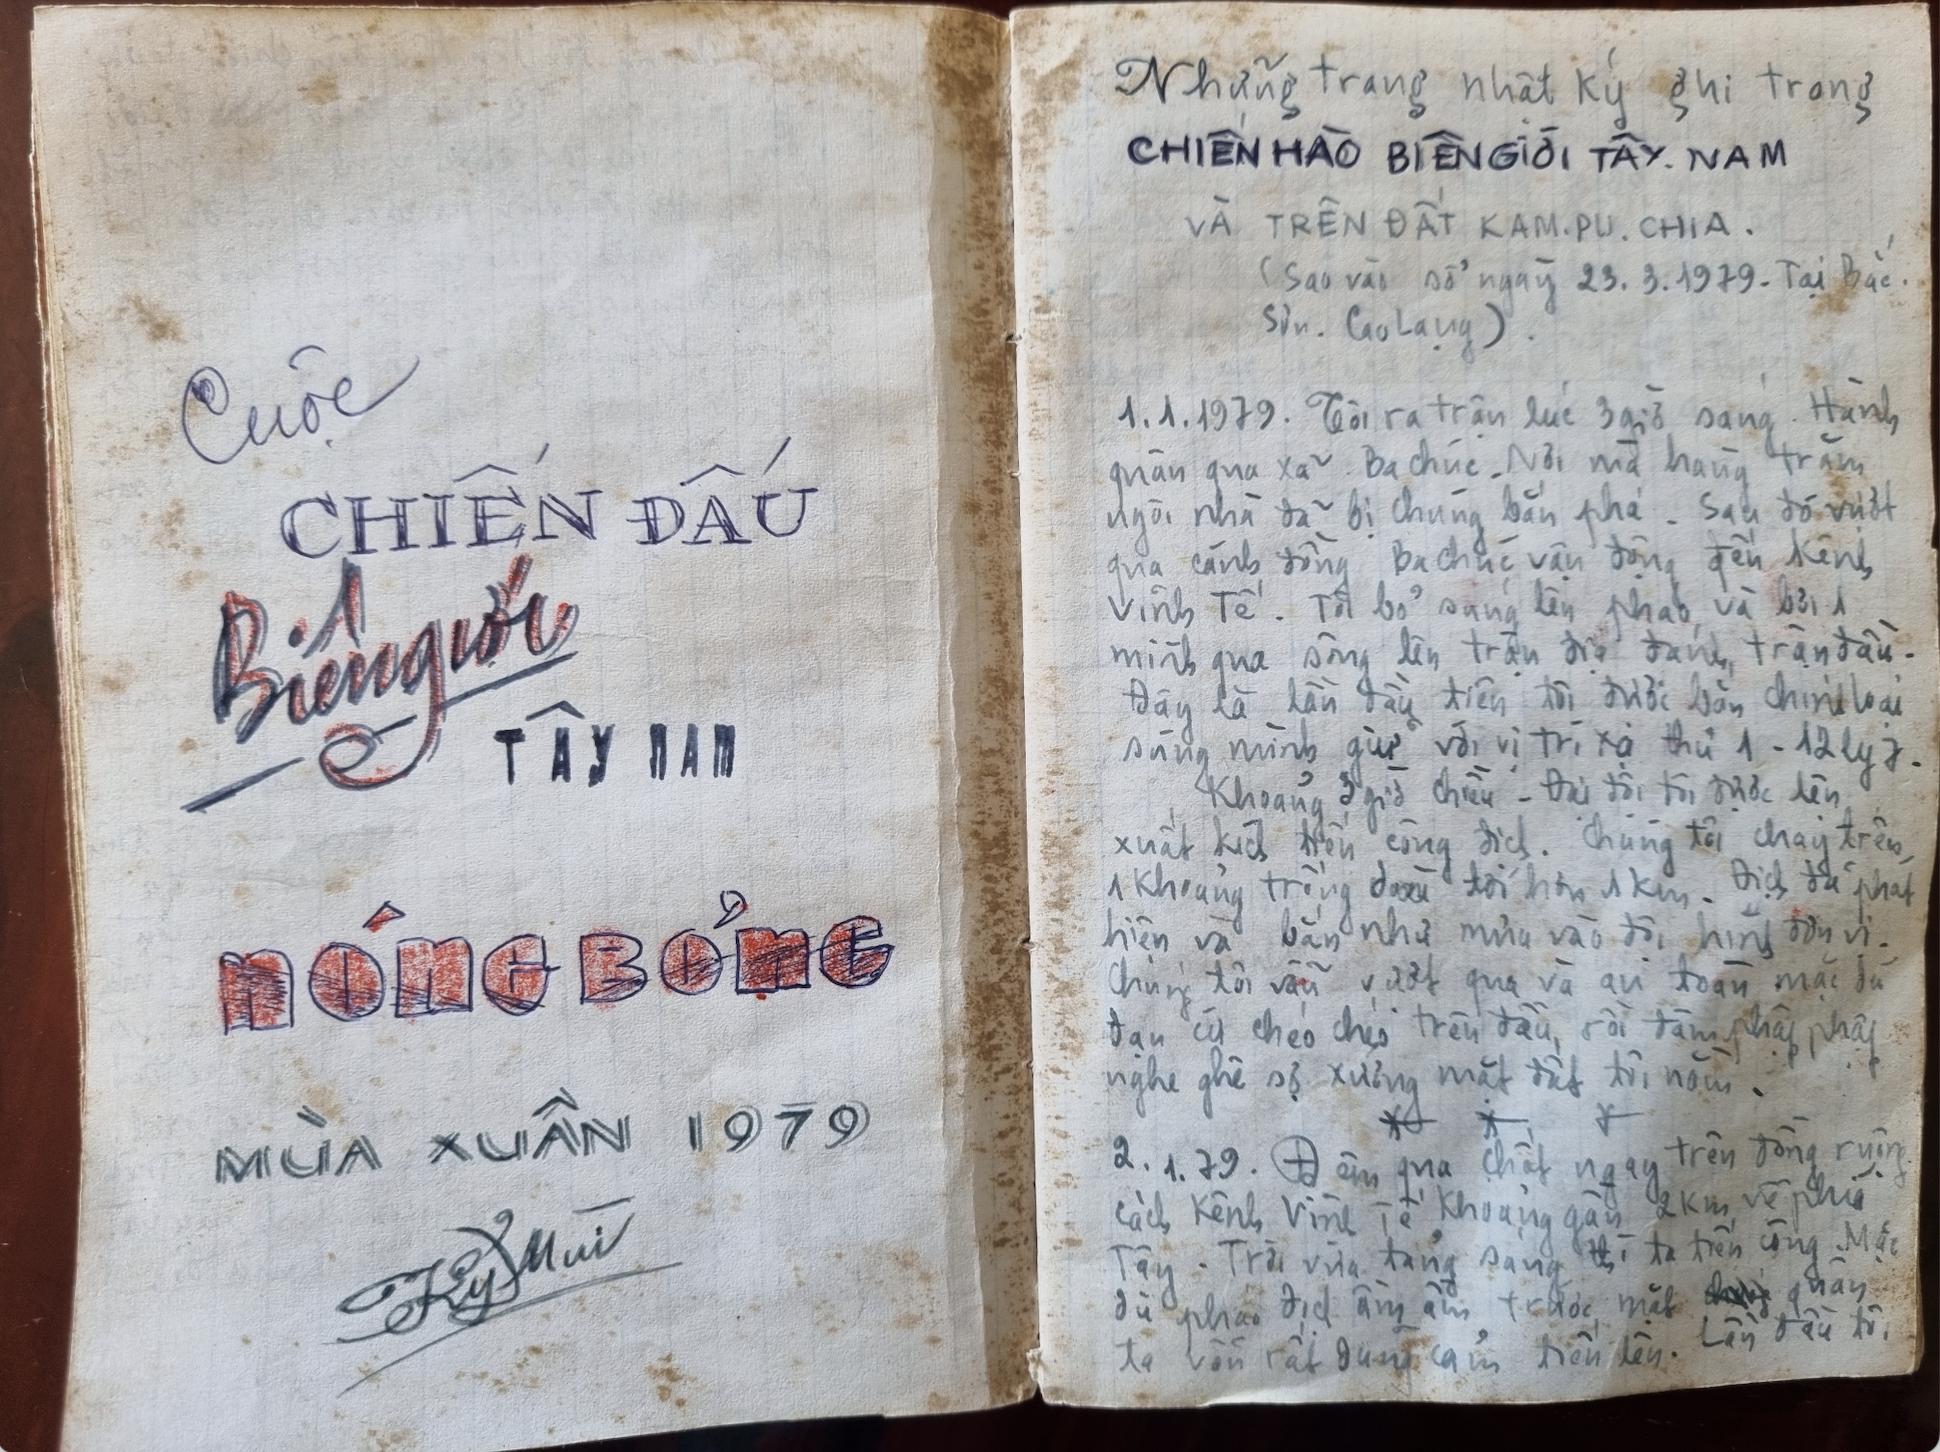 Cuộc
CHIẾN ĐẤU
Biên giới
TÂY NAM
NÓNG BỎNG
MÙA XUÂN 1979
Kỷ Mùi
Những trang nhật ký ghi trong
CHIẾN HÀO BIÊN GIỚI TÂY. NAM
VÀ TRÊN ĐẤT KAM.PU.CHIA.
(Sao vào sổ ngày 23.3.1979 - Tại Bắc.
Sơn. Cao Lạng).
1.1.1979. Tôi ra trận lúc 3 giờ sáng. Hành
quân qua xã Ba chúc. Nơi mà hàng trăm
ngôi nhà đã bị chúng bắn phá. Sau đó vượt
qua cánh đồng Ba chúc vận động đến Kênh
Vĩnh Tế. Tôi bỏ súng lên phao, và bơi 1
mình qua sông lên trận địa đánh, trận đầu.
Đây là lần đầu tiên tôi được bắn chính loại
súng mình giữ với vị trí xạ thủ 1 - 12 ly 7.
Khoảng 3 giờ chiều - Đại đội tôi được lên
xuất kích tiến công địch. Chúng tôi chạy trên,
1 khoảng trống tới hơn 1 km. Địch đã phát
hiện và bắn như mưa vào đội hình đơn vị.
Chúng tôi vẫn vượt qua và an toàn mặc dù
đạn cứ chéo chéo trên đầu, rồi đâm phập phập
nghe ghê sợ xuống mặt đất tôi nằm.
2.1.79. Đêm qua chốt ngay trên đồng ruộng
cách Kênh Vĩnh Tế khoảng gần 2 km, về phía
Tây. Trời vừa tảng sáng thì ta tiến công. Mặc
dù pháo địch ầm ầm trước mặt quân
ta vẫn rất dũng cảm tiến lên. Lần đầu tôi